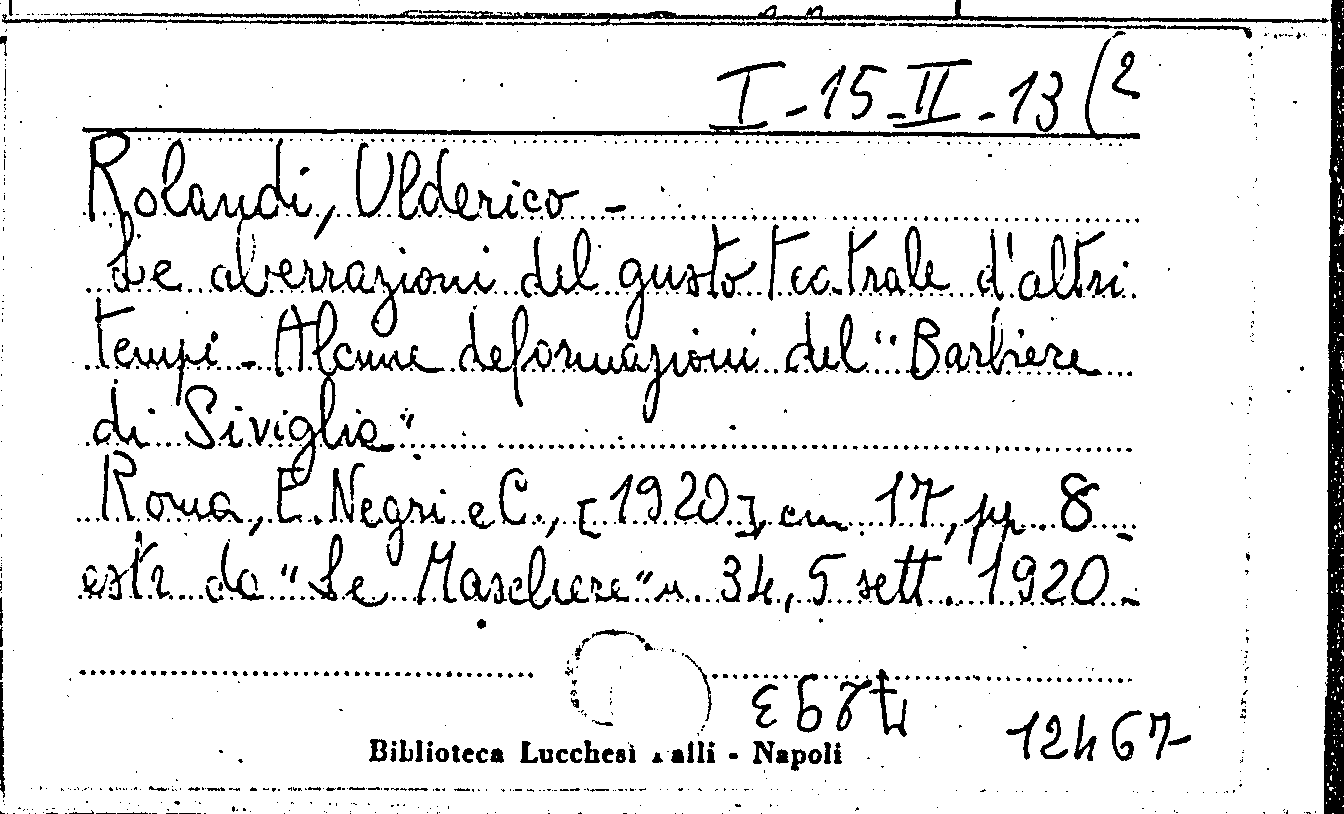 I-15-II-13(2
Rolandi, Ulderico -
Le aberrazioni del gusto teatrale d'altri
tempi - Alcune deformazioni del "Barbiere
di Siviglia".
Roma, E. Negri e C., [1920], cm 17, pp. 8 -
estr. da "Le Maschere" n. 34, 5 sett. 1920 -
12467
Biblioteca Lucchesi alli - Napoli